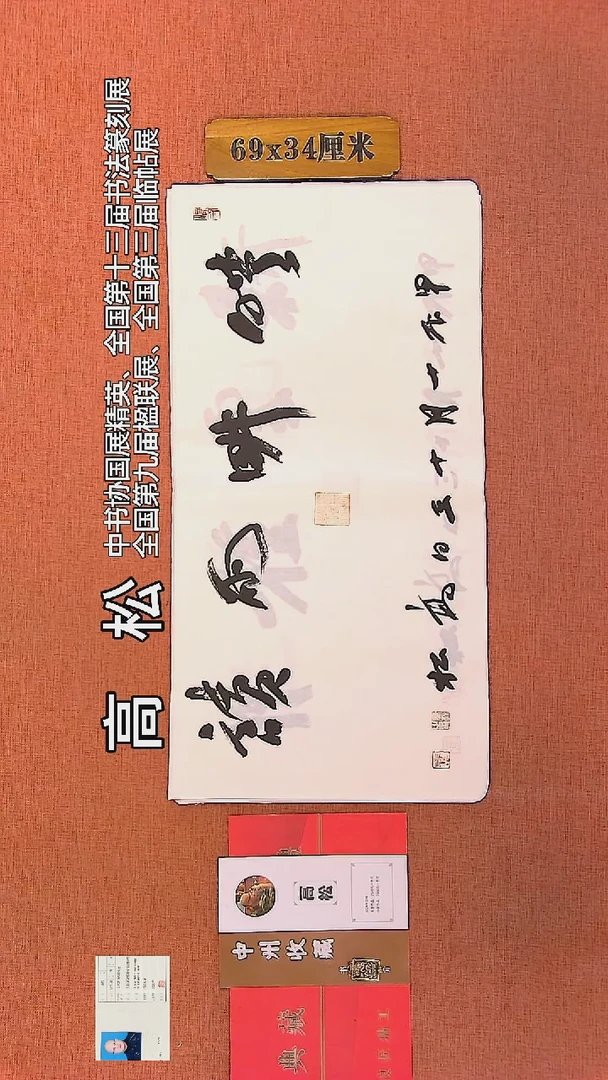 高 松
中书协国展精英、全国第十三届书法篆刻展
全国第九届楹联展、全国第三届临帖展
69x34厘米
晴畊雨讀
甲辰十月十五日高松
高松
中州收藏
典藏